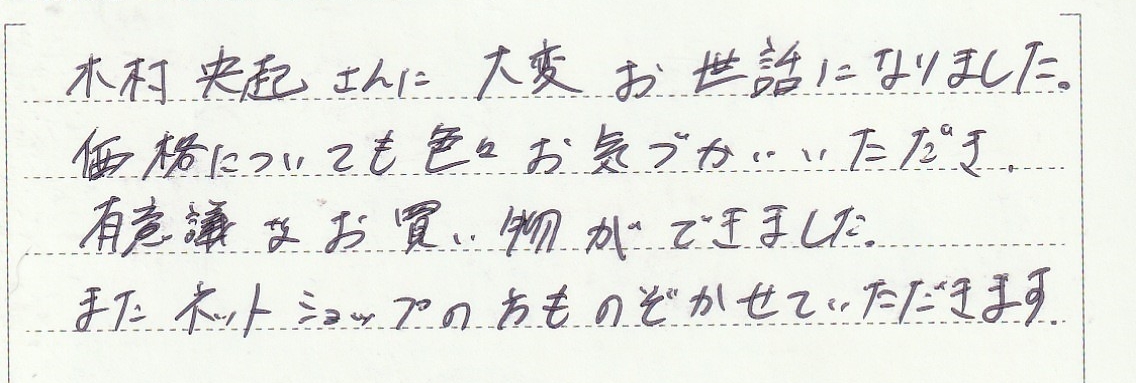 木村 央起 さんに 大変 お 世話になりました。
価格についても色々お気づかいいただき、
有意議なお買い物ができました。
またネットショップの方ものぞかせていただきます。